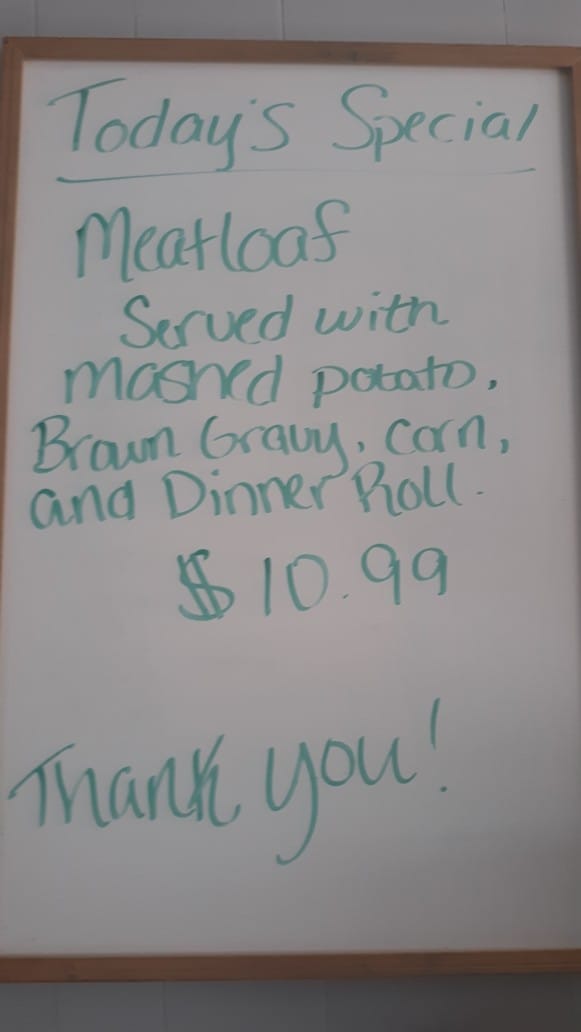 Today's Special
Meatloaf
Served with
mashed potato,
Brown Gravy, corn,
and Dinner Roll.
$10.99
Thank you!